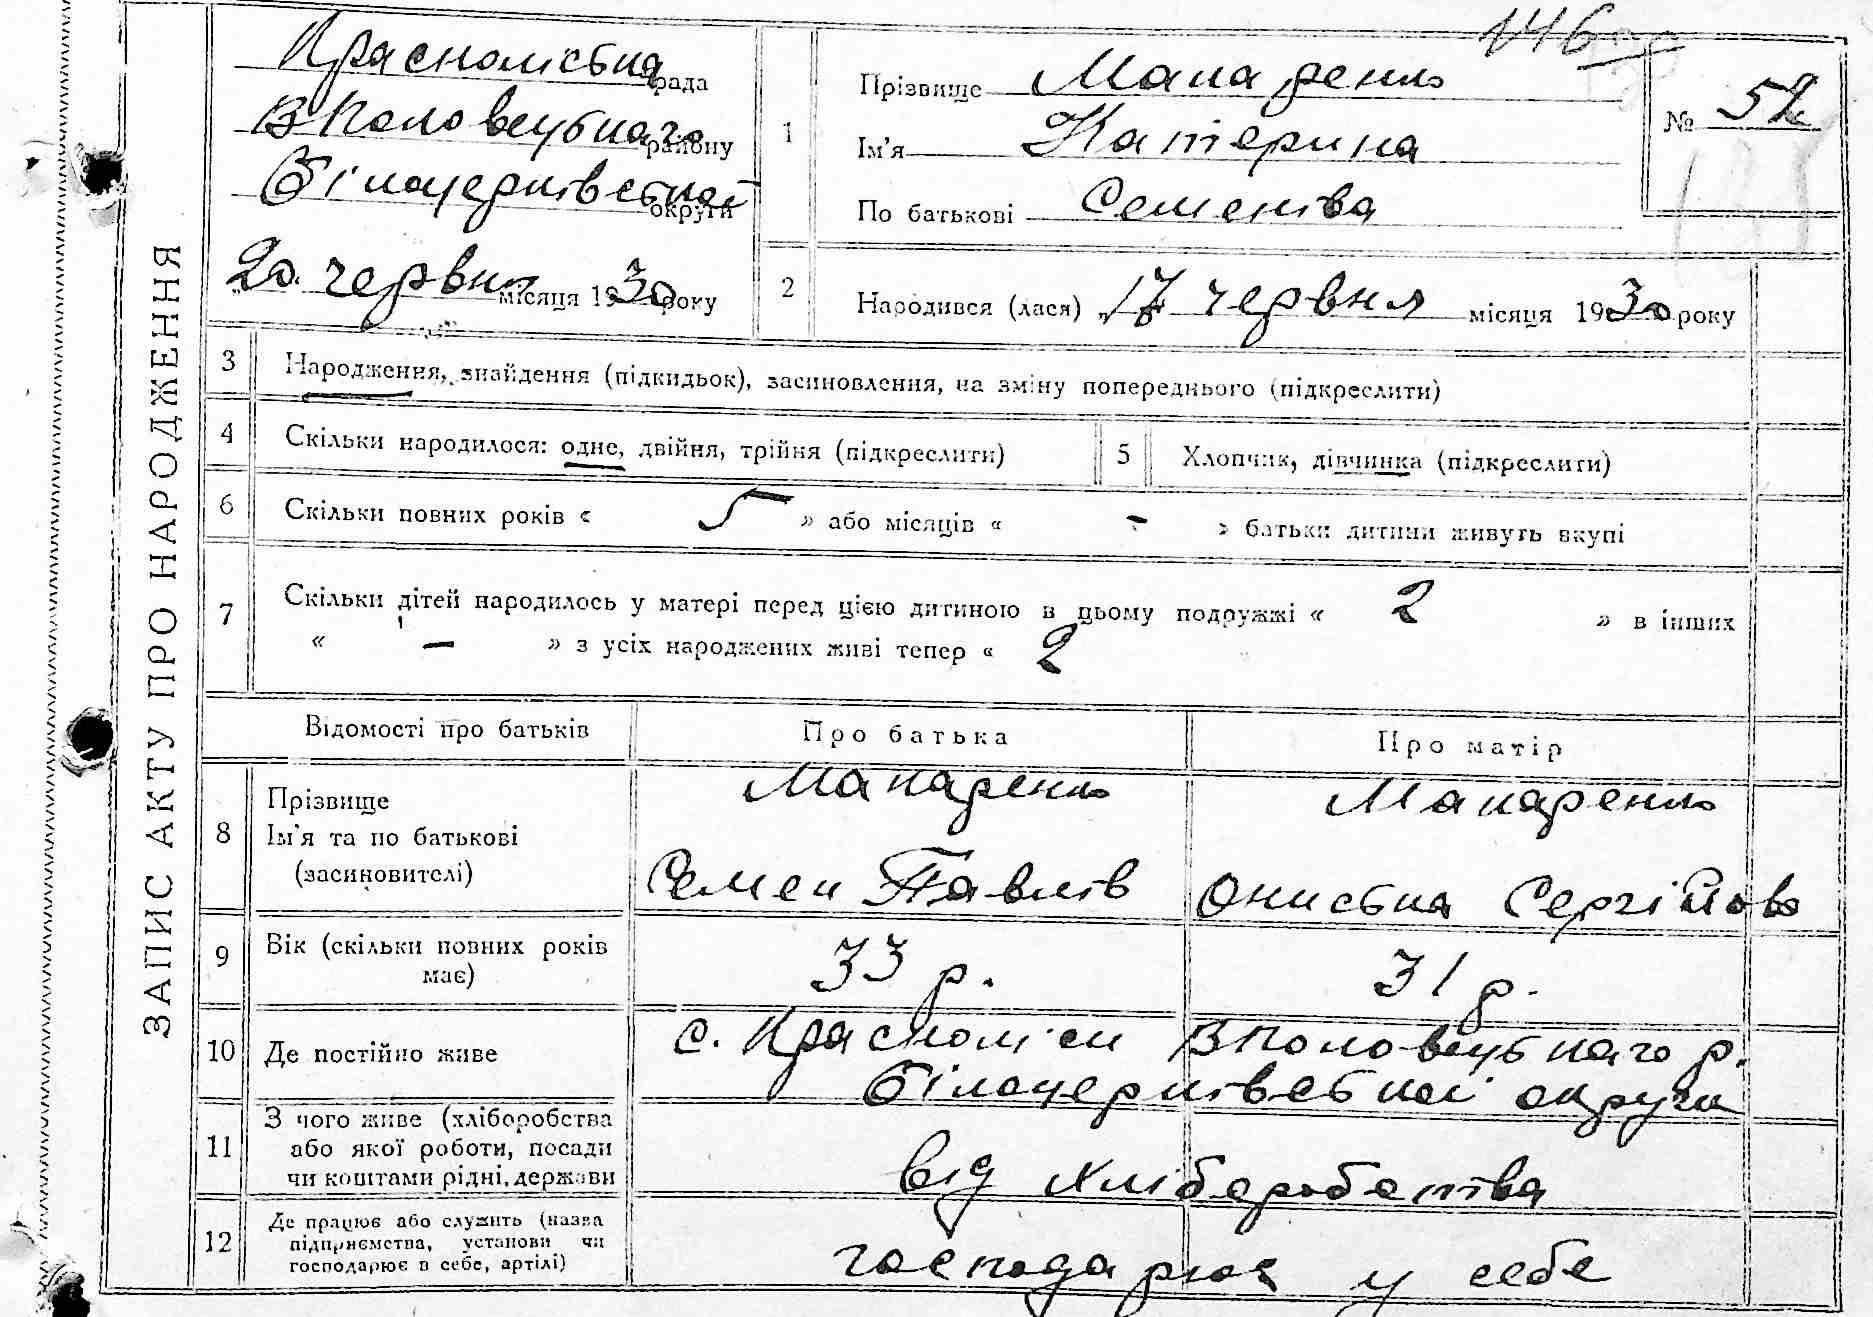 146
ЗАПИС АКТУ ПРО НАРОДЖЕННЯ
Красноліська рада
ВПоловецького району
Білоцерківської округи
20 червня місяця 1930 року
1
Прізвище Макаренко
Ім'я Катерина
По батькові Семенова
№ 52
2
Народився (лася) „17 червня місяця 1930 року
3 Народження, знайдення (підкидьок), засиновлення, на зміну попереднього (підкреслити)
4 Скільки народилося: одне, двійня, трійня (підкреслити)
5 Хлопчик, дівчинка (підкреслити)
6 Скільки повних років « 5 » або місяців « - » батьки дитини живуть вкупі
7 Скільки дітей народилось у матері перед цією дитиною в цьому подружжі « 2 » в інших
« — » з усіх народжених живі тепер « 2
Відомості про батьків Про батька Про матір
8 Прізвище Макаренко Макаренко
Ім'я та по батькові
(засиновителі) Семен Павлів Ониська Сергійова
9 Вік (скільки повних років має) 33 р. 31 р.
10 Де постійно живе с. Красноліси ВПоловецького р.
Білоцерківської округи
11 З чого живе (хліборобства
або якої роботи, посади
чи коштами рідні, держави від хліборобства
12 Де працює або служить (назва
підприємства, установи чи
господарює в себе, артілі) господарює у себе